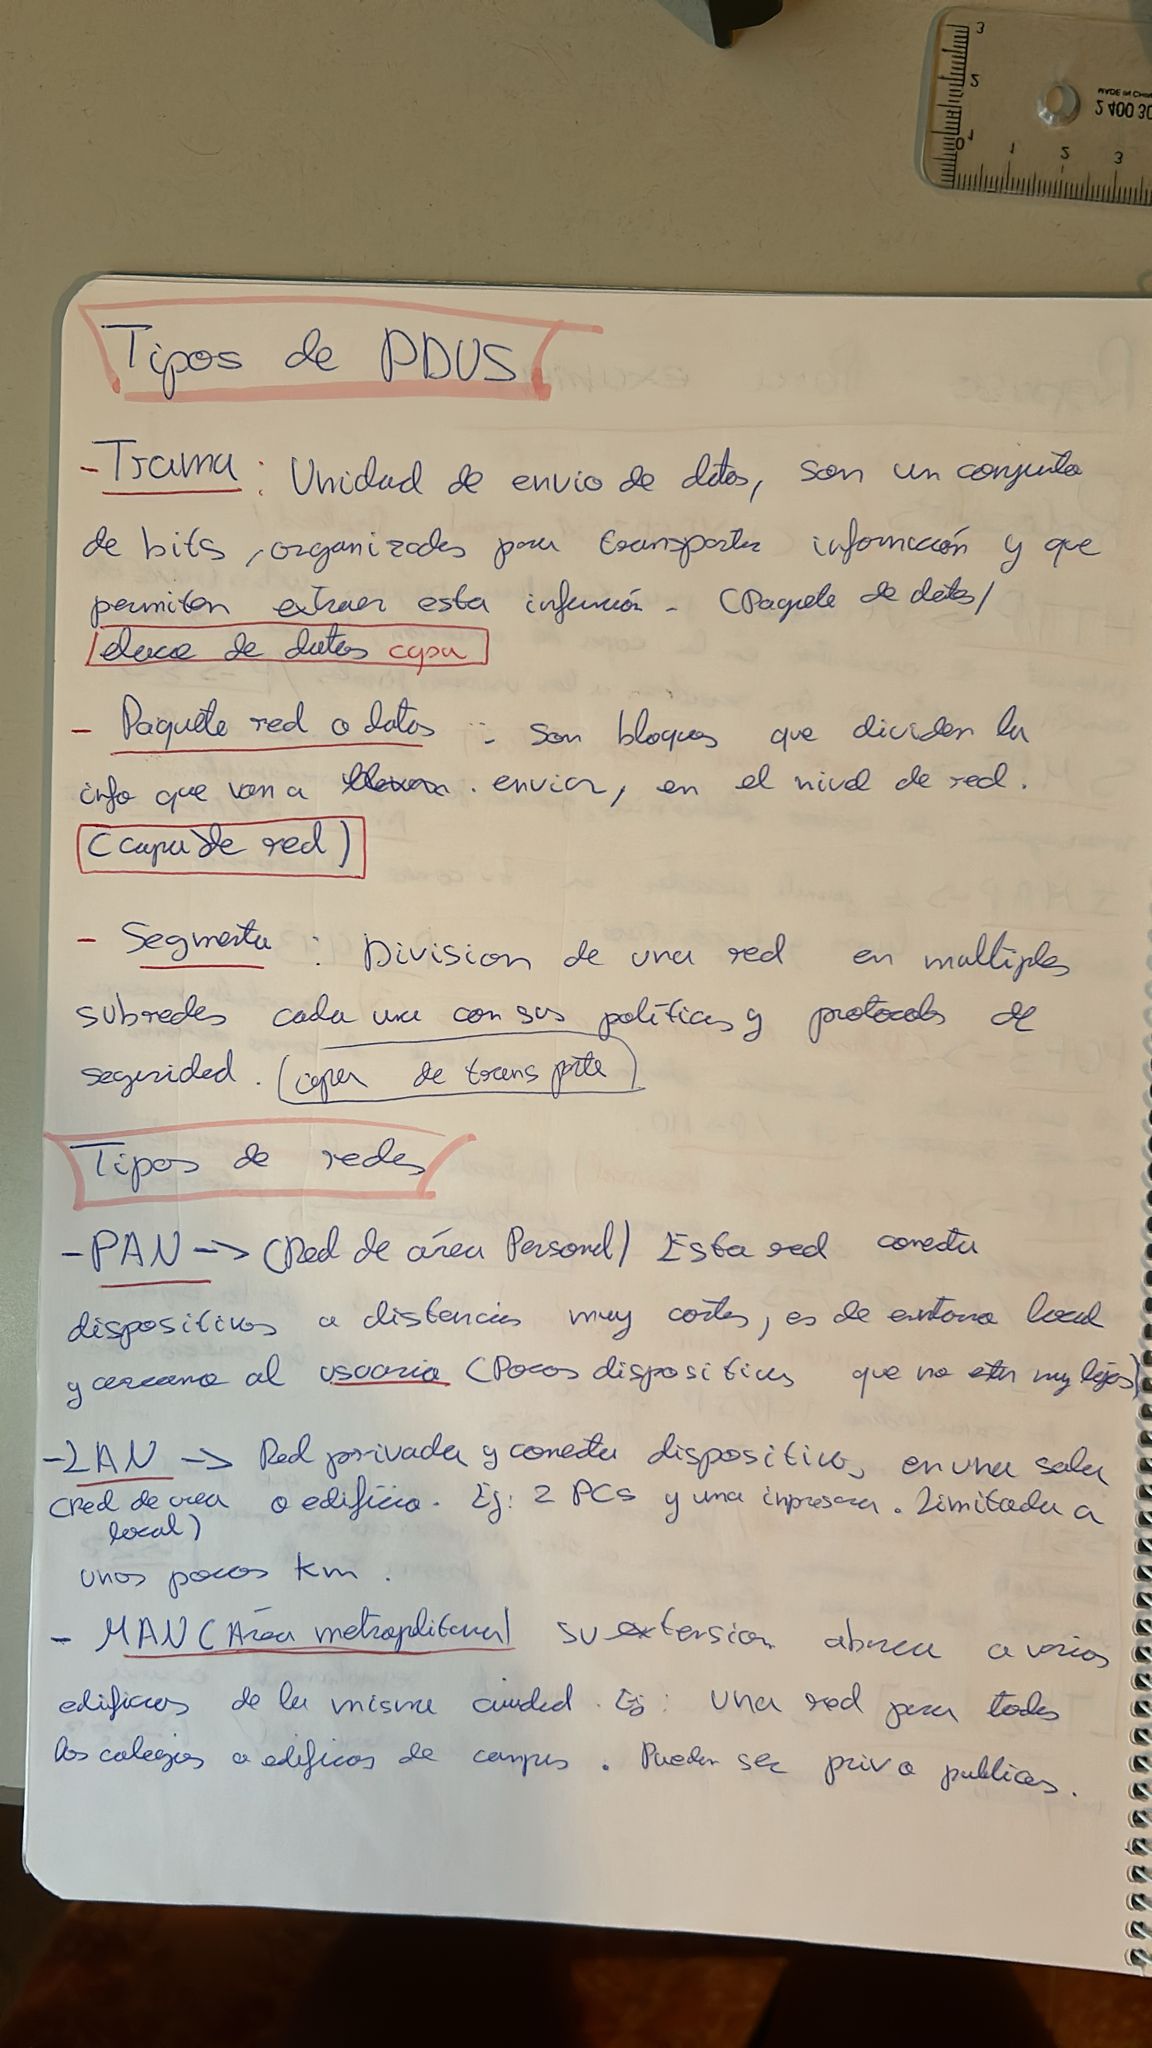 3
2
1
0
1 2 3
MADE IN CHINA
2 400 30
Tipos de PDUS
- Trama : Unidad de envio de datos, son un conjunto
de bits, organizados para transportar información y que
permiten extraer esta información. (Paquete de datos/
/elace de datos capa
- Paquete red o datos : Son bloques que dividen la
info que van a enviar, en el nivel de red.
(capa de red)
- Segmento : Division de una red en multiples
subredes cada una con sus políticas y protocolos de
seguridad. (capa de transporte)
Tipos de redes
- PAN -> (Red de área Personal) Esta red conecta
dispositivos a distancias muy cortas, es de entorno local
y cercano al usuario (Pocos dispositivos que no estan muy lejos)
- LAN -> Red privada y conecta dispositivos, en una sala
(Red de area o edificio. Ej: 2 PCs y una inpresora. Limitada a
local)
unos pocos km.
- MAN (Área metropolitana) su extension abarca a varios
edificios de la misma ciudad. Ej: Una red para todos
los colegios o edificios de campus. Pueden ser priv o publicas.